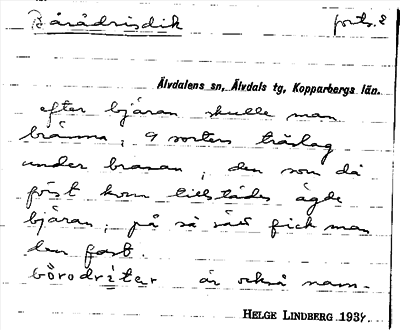 Bårådrisdik forts. 2
Älvdalens sn, Älvdals tg, Kopparbergs län.
efter bjäran skulle man
bränna, 9 sorters träslag
under brasan, den som då
först kom tillstädes ägde
bjäran, på så sätt fick man
den fast.
börodriter är också nam-
HELGE LINDBERG 1937.